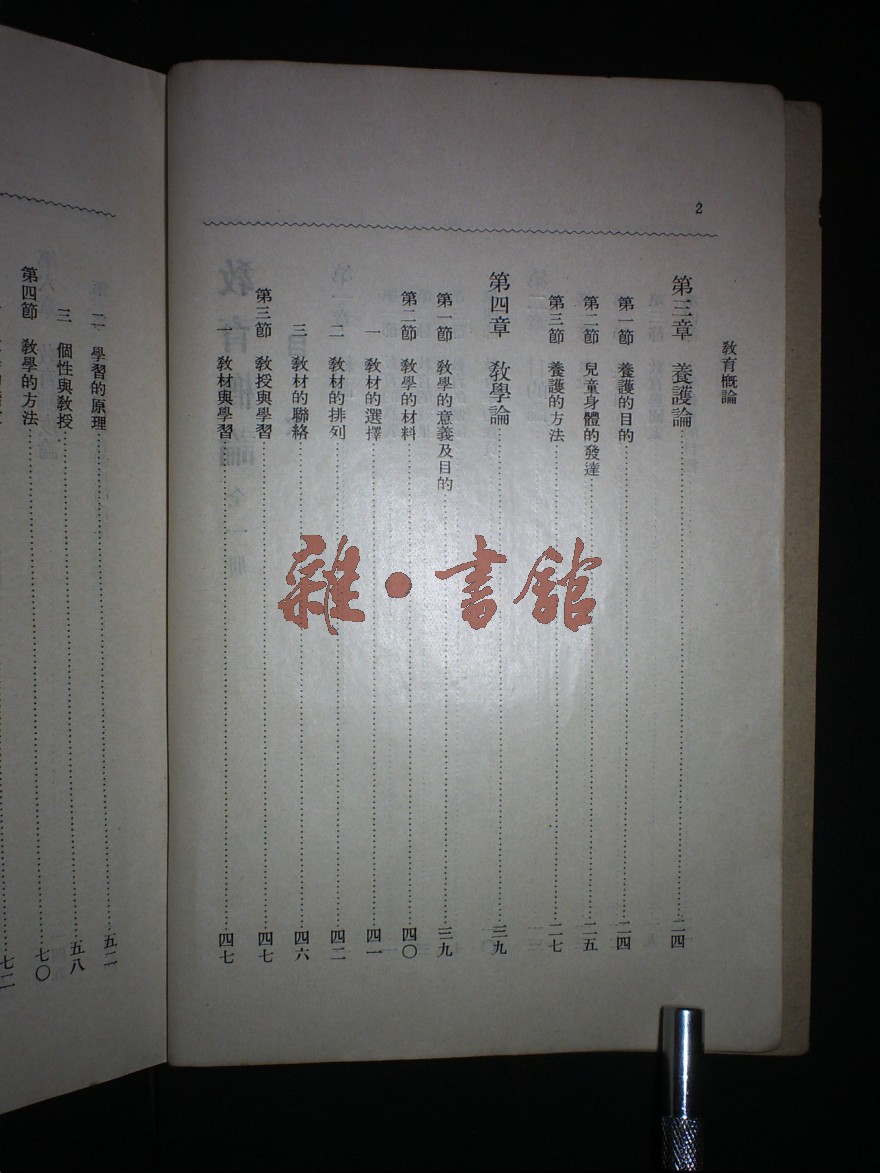 2
教育概論
第三章 養護論 二四
第一節 養護的目的 二四
第二節 兒童身體的發達 二五
第三節 養護的方法 二七
第四章 教學論 三九
第一節 教學的意義及目的 三九
第二節 教學的材料 四〇
一 教材的選擇 四一
二 教材的排列 四二
三 教材的聯絡 四六
第三節 教授與學習 四七
一 教材與學習 四七
二 學習的原理 五二
三 個性與教授 五八
第四節 教學的方法 七〇
七二
雜·書館